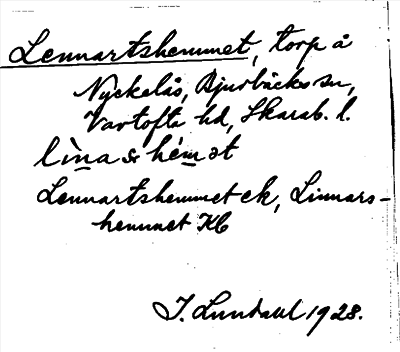 Lennartshemmet, torp å
Nyckelås, Bjurbäcks sn,
Vartofta hd, Skarab. l.
lìnaʂhémət
Lennartshemmet ek, Linnars-
hemmet Kb
I. Lundahl 1928.